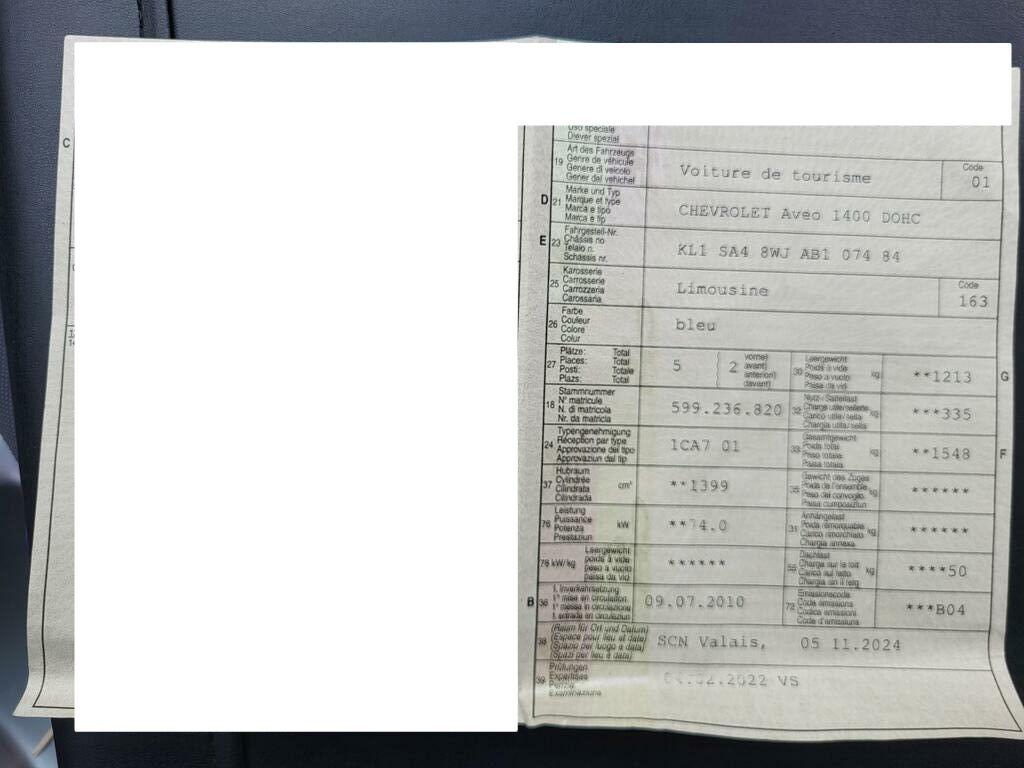 C
Uso speciale
Diever spezial
19 Art des Fahrzeugs
Genre de véhicule
Genere di veicolo
Gener dal vehichel
Voiture de tourisme
Code
01
D 21 Marke und Typ
Marque et type
Marca e tipo
Marca e tip
CHEVROLET Aveo 1400 DOHC
E 23 Fahrgestell-Nr.
Châssis no
Telaio n.
Schassis nr.
KL1 SA4 8WJ AB1 074 84
25 Karosserie
Carrosserie
Carrozzeria
Carossaria
Limousine
Code
163
26 Farbe
Couleur
Colore
Colur
bleu
27 Plätze: Total
Places: Total
Posti: Totale
Plazs: Total
5
2
vorne)
avant)
anteriori)
davant)
30 Leergewicht
Poids à vide
Peso a vuoto
Paisa da vid
kg
**1213
G
18 Stammnummer
N° matricule
N. di matricola
Nr. da matricla
599.236.820
32 Nutz-/Sattellast
Charge utile/sellette
Carico utile/sella
Chargia utila/sella
kg
***335
24 Typengenehmigung
Réception par type
Approvazione del tipo
Approvaziun dal tip
1CA7 01
33 Gesamtgewicht
Poids total
Peso totale
Paisa totala
kg
**1548
F
37 Hubraum
Cylindrée
Cilindrata
Cilindrada
cm³
**1399
35 Gewicht des Zuges
Poids de l'ensemble
Peso del convoglio
Paisa cumposiziun
kg
******
76 Leistung
Puissance
Potenza
Prestaziun
kW
**74.0
31 Anhängelast
Poids remorquable
Carico rimorchiato
Chargia annexa
kg
******
78 kW/kg
Leergewicht
poids à vide
peso a vuoto
paisa da vid
******
55 Dachlast
Charge sur le toit
Carico sul tetto
Chargia sin il tetg
kg
****50
B 36 1. Inverkehrsetzung
1re mise en circulation
1a messa in circolazione
1. entrada en circulaziun
09.07.2010
72 Emissionscode
Code émissions
Codice emissioni
Code d'emissiuns
***B04
38 (Raum für Ort und Datum)
(Espace pour lieu et date)
(Spazio per luogo e data)
(Spazi per lieu e data)
SCN Valais, 05 11.2024
39 Prüfungen
Expertises
Perizie
Examinaziuns
.02.2022 VS